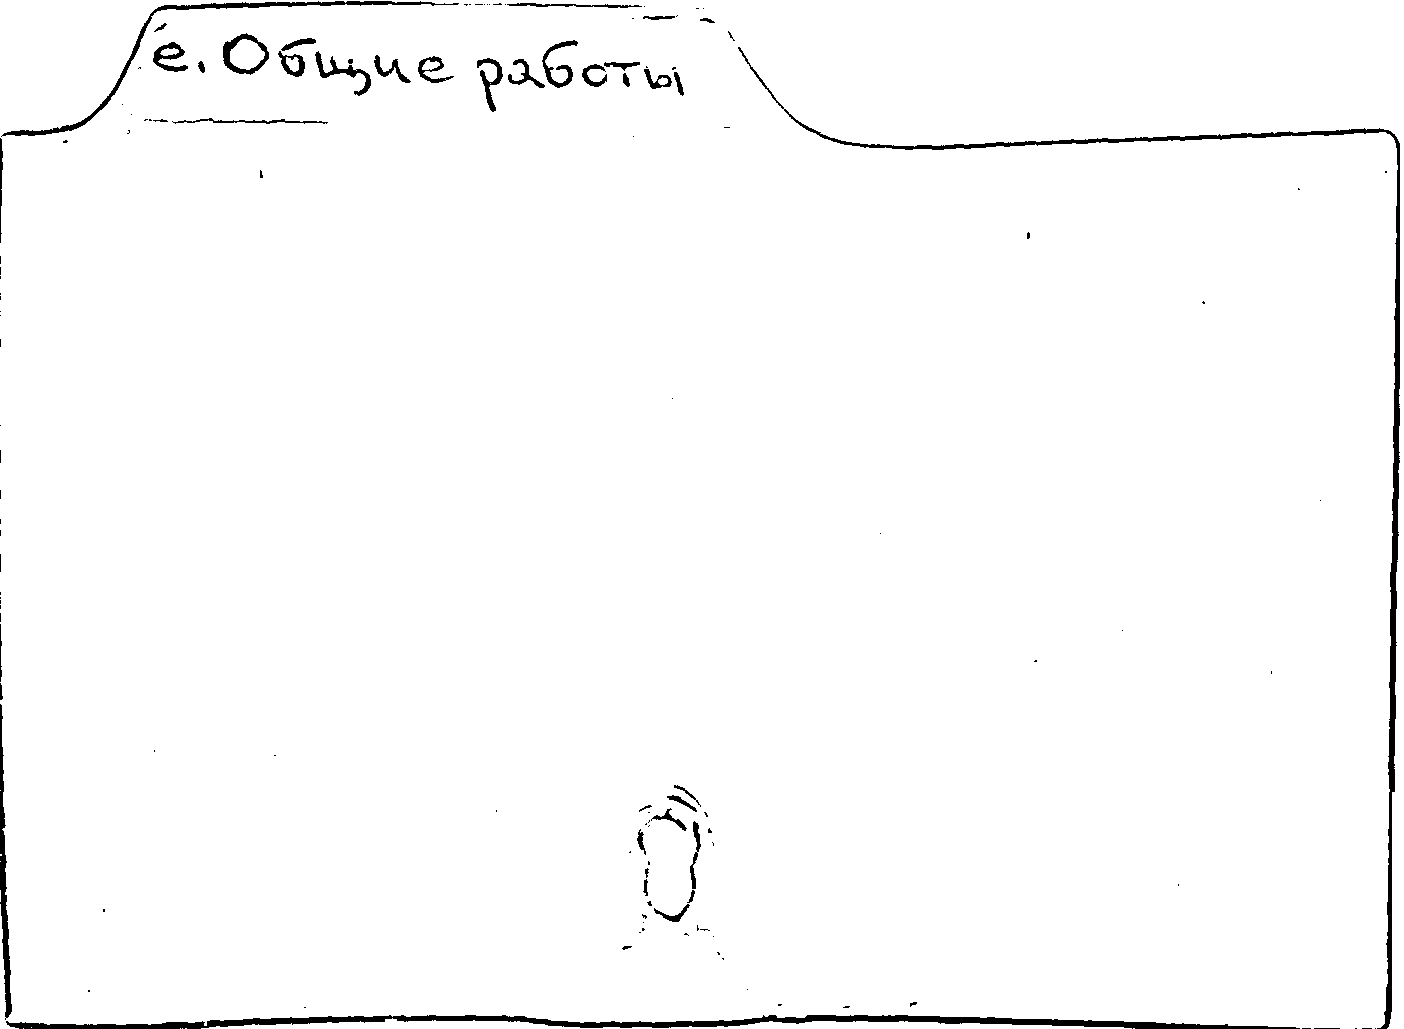 е. Общие работы